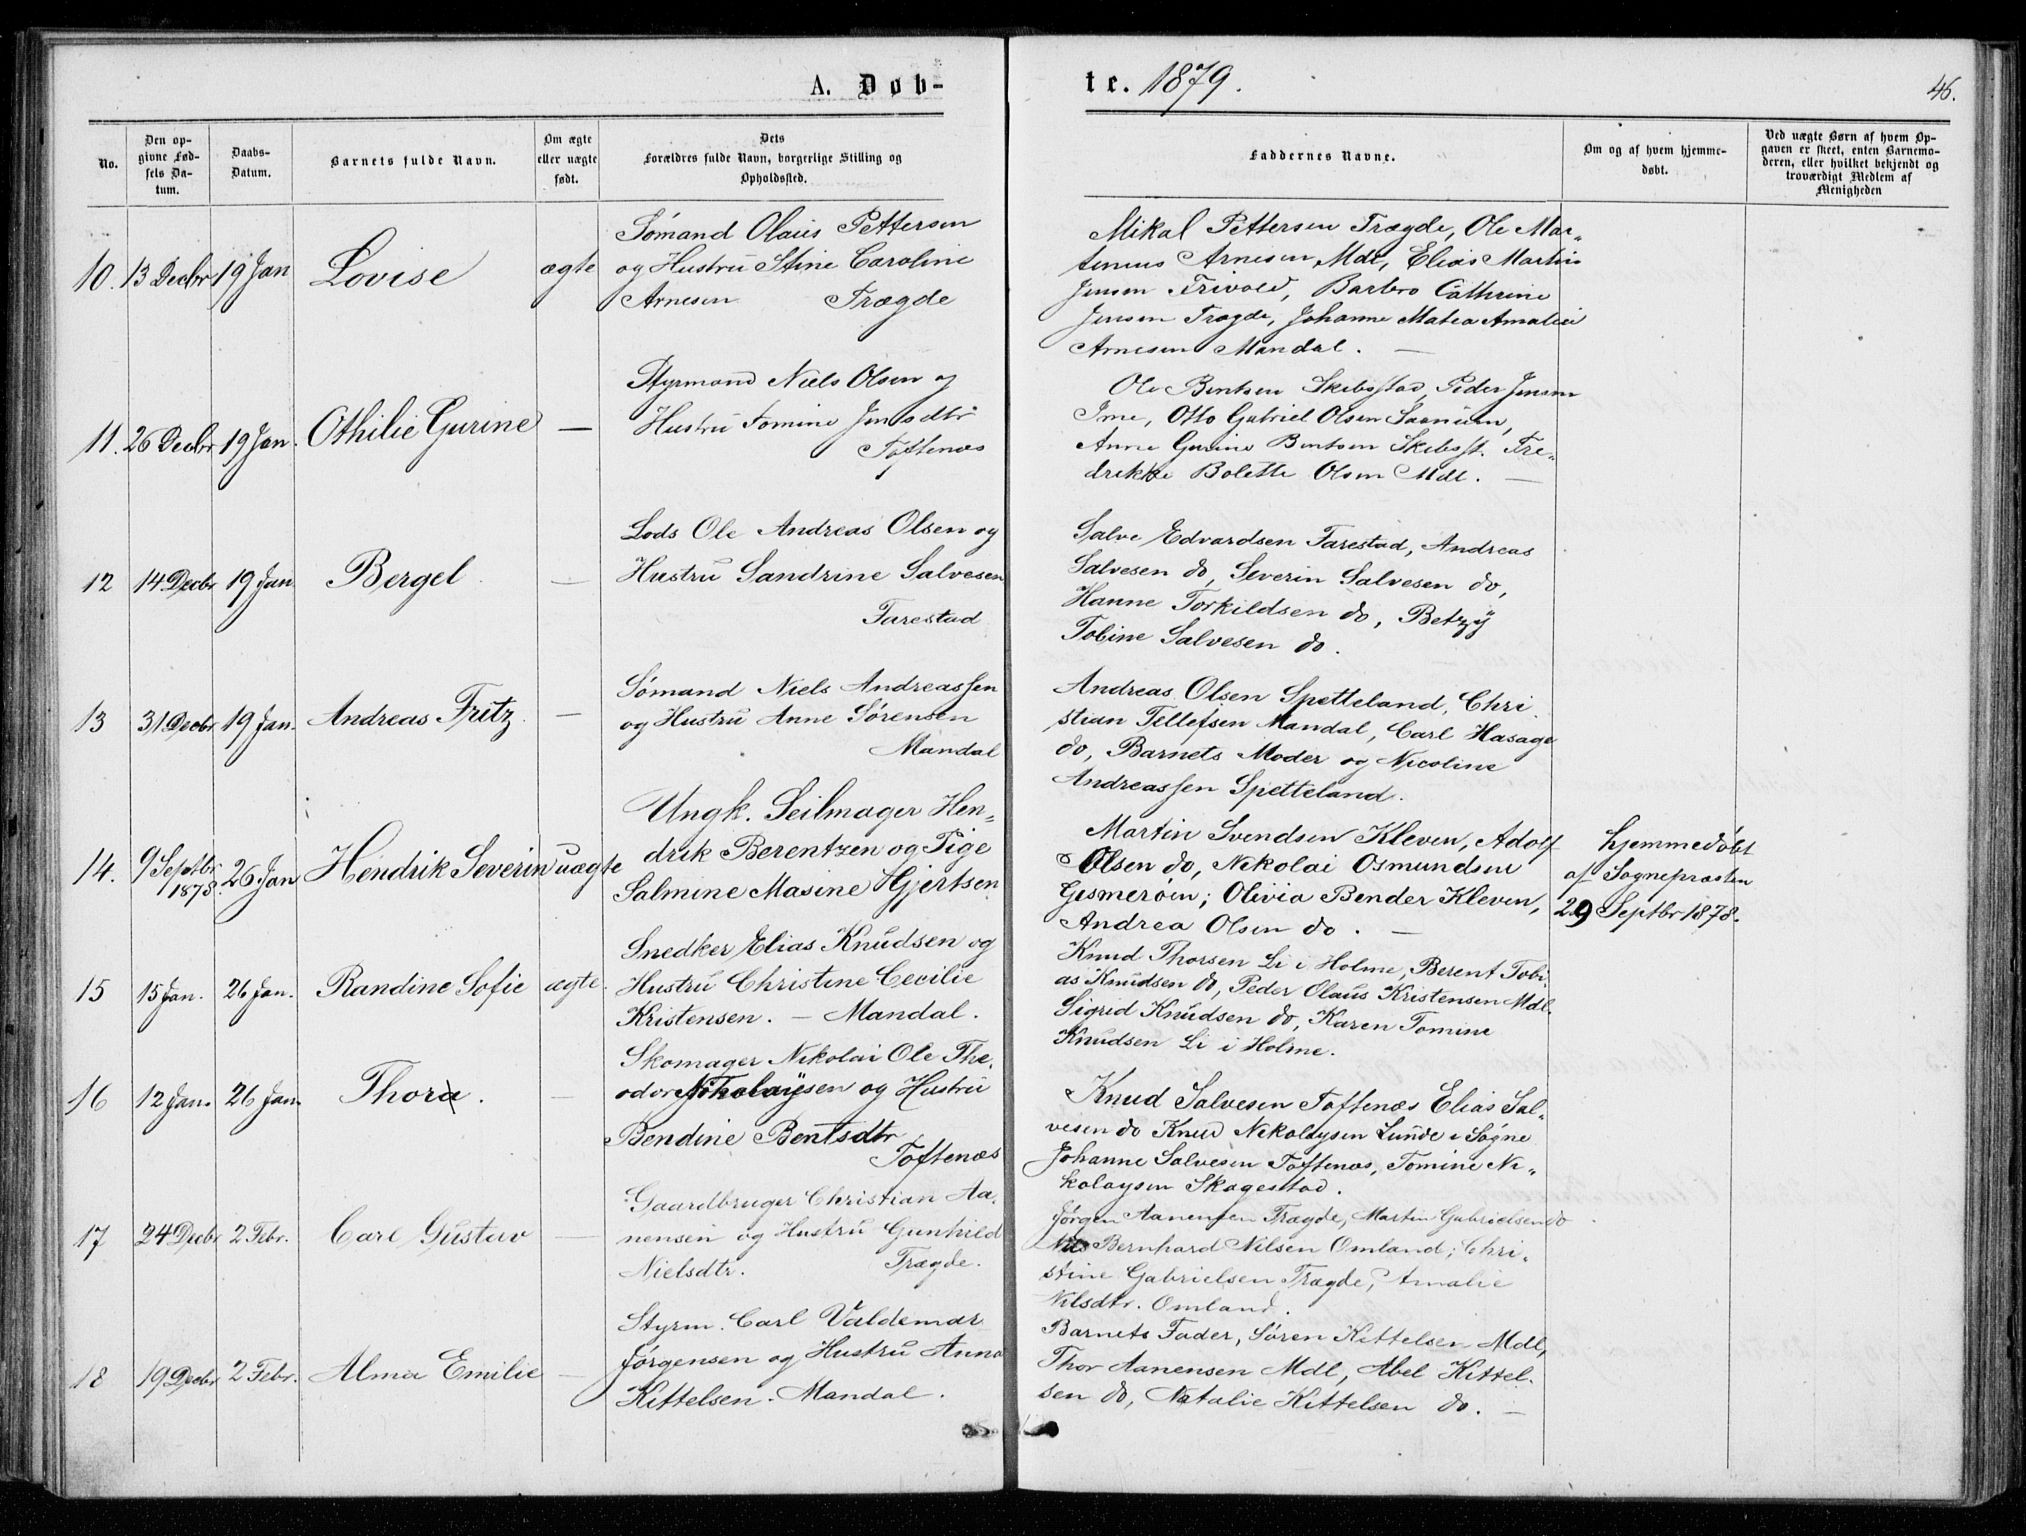 A. Døb-
te. 1879.
46.
No.
Den op-
givne Fød-
sels Da-
tum.
Daabs-
Datum.
Barnets fulde Navn.
Om ægte
eller uægte
født.
Dets
Forældres fulde Navn, borgerlige Stilling og
Opholdssted.
Faddernes Navne.
Om og af hvem hjemme-
døbt.
Ved uægte Børn af hvem Op-
gaven er skeet, enten Barnemo-
deren, eller hvilket bekjendt og
troværdigt Medlem af
Menigheden
10. 13 Decbr 19 Jan Lovise ægte
Sømand Olaus Pettersen
og Hustru Stine Caroline
Arnesen Trægde
Mikal Pettersen Trægde, Ole Mar-
tinius Arnesen Mdl, Elias Martin
Jensen Frivold, Barbro Cathrine
Jensen Trægde, Johanne Matea Amalie
Arnesen Mandal. —
11. 26 Decbr 19 Jan. Othilie Gurine —
Styrmand Niels Olsen og
Hustru Tomine Jensdtr
Toftenæs
Ole Bentsen Skibsstad, Peder Jensen
Ime, Otto Gabriel Olsen Sannum,
Anne Gurine Bentsen Skibsst. Fre-
drikke Bolette Olsen Mdl. —
12 14 Decbr 19 Jan Bergel —
Lods Ole Andreas Olsen og
Hustru Sandrine Salvesen
Farestad
Salve Edvardsen Farestad, Andreas
Salvesen do, Severin Salvesen do,
Hanne Torkildsen do, Betzy
Tobine Salvesen do.
13 31 Decbr 19 Jan. Andreas Fritz. —
Sømand Niels Andreassen
og Hustru Anne Sørensen
Mandal
Andreas Olsen Spetteland, Chri
stian Tellefsen Mandal, Carl Hasage
do, Barnets Moder og Nicoline
Andreassen Spetteland.
14. 9 Septbr 1878. 26 Jan Hendrik Severin uægte
Ungk. Seilmager Hen-
drik Berentzen og Pige
Salmine Masine Gjertsen
Martin Svendsen Kleven, Adolf
Olsen do, Nikolai Osmundsen
Gismerøen; Olivia Bender Kleven,
Andrea Olsen do. —
hjemmedøbt
af Sognepræsten
29 Septbr 1878.
15 15 Jan. 26 Jan. Randine Sofie ægte.
Snedker Elias Knudsen og
Hustru Christine Cecilie
Kristensen. — Mandal.
Knud Thorsen Li i Holme, Berent Tobi-
as Knudsen do, Peder Olaus Kristensen Mdl.
Sigrid Knudsen do, Karen Tomine
Knudsen Li i Holme.
16 12 Jan. 26 Jan. Thora. —
Skomager Nikolai Ole The-
odor Nikolaysen og Hustru
Bendine Bentsdtr
Toftenæs
Knud Salvesen Toftenæs Elias Sal-
vesen do Knud Nikolaysen Lunde i Søgne
Johanne Salvesen Toftenæs, Tomine Ni-
kolaysen Skagestad.
17 24 Decbr 2 Febr. Carl Gustav —
Gaardbruger Christian Aa-
nensen og Hustru Gunhild
Nielsdtr. Trægde.
Jørgen Aanensen Trægde, Martin Gabrielsen do
Bernhard Nilsen Omland; Chri-
stine Gabrielsen Trægde, Amalie
Nilsdtr. Omland.
18 19 Decbr 2 Febr. Alma Emilie —
Styrm. Carl Valdemar
Jørgensen og Hustru Anna
Kittelsen. Mandal.
Barnets Fader, Søren Kittelsen Mdl,
Thor Aanensen Mdl, Abel Kittel-
sen do, Natalie Kittelsen do. —